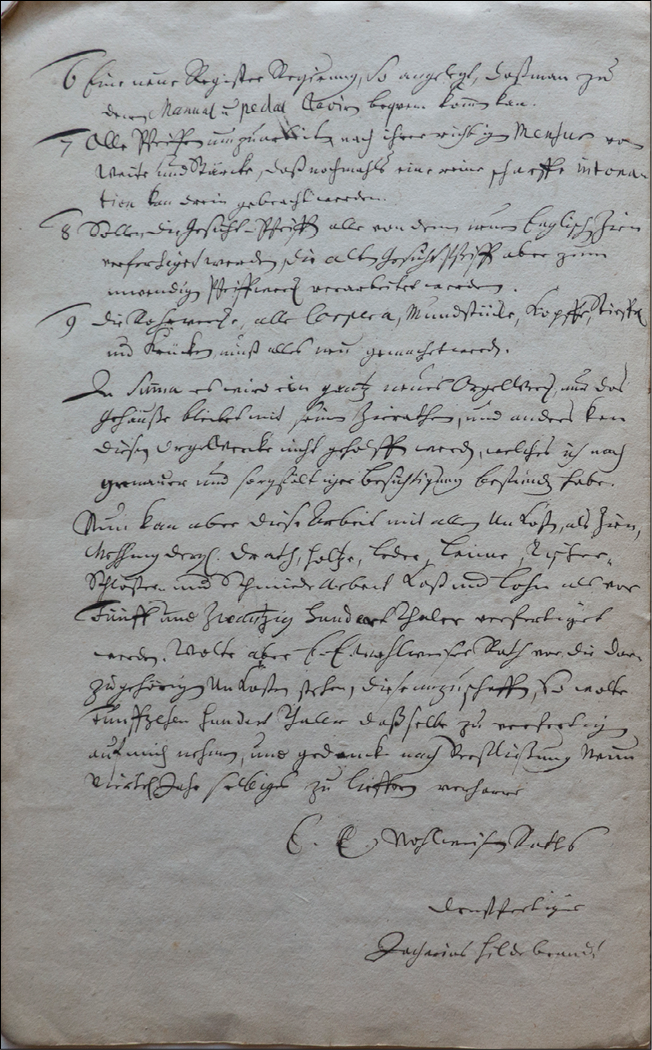 6 Eine neue Register Regirung, so angelegt, daß man zu
denen Manual u pedal Clavirn bequem komen kan.
7 Alle Pfeiffen umzuarbeiten, nach ihrer richtigen Mensur von
Weite und Stärcke, daß nochmahls eine reine scharffe intona-
tion kan drein gebracht werden.
8 Sollen die Gesicht-Pfeiffen alle von dem neuen Englisch Zien
verfertiget werden, die alten Gesicht Pfeiffen aber zum
inwendigen Pfeiffwerck verarbeitet werden.
9 die Rohrwercke, alle Corpera, Mundstücke, Köpffe, Stieffel
und Krücken, muß alles neu gemacht werden.
In Suma es wird ein gantz neues Orgelwerck, nur das
Gehäuße bleibet mit seinen Zierathen, und anders kan
diesen Orgelwercke nicht geholffen werden, welches ich nach
genauer und sorgfältiger Besichtigung befunden habe.
Nun kan aber diese Arbeit mit allen Unkosten, als Zien,
Meßing drath, Holtz, Leder, Leime, Tischer-
Schlößer- und Schmiede Arbeit Kost und Lohn als vor
Fünff und Zwantzig Hundert Thaler verfertiget
werden. Wolte aber E. E. Wohlweiser Rath vor die darzu
zugehörigen Unkosten stehen, diese anzuschaffen, so wolte
Funffzehen Hundert Thaler daßselbe zu verfertigen
auf mich nehmen, und gedencke nach Verfließung Neun
Viertel Jahr selbiges zu lieffern verharre
E. E. Wohlweisen Raths
dienstfertiger
Zacharias Hildebrandt